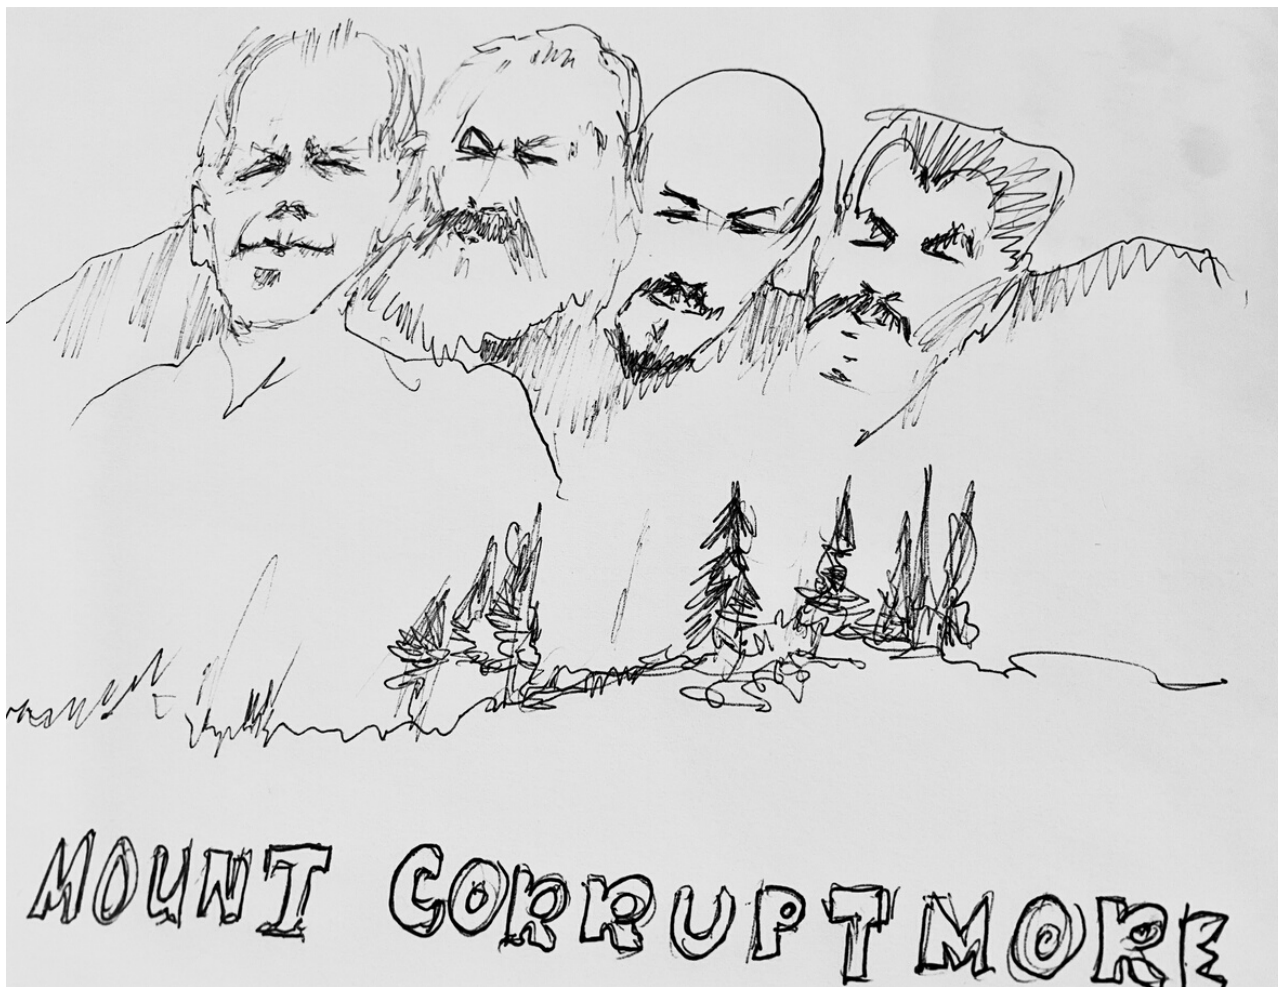 MOUNT CORRUPTMORE